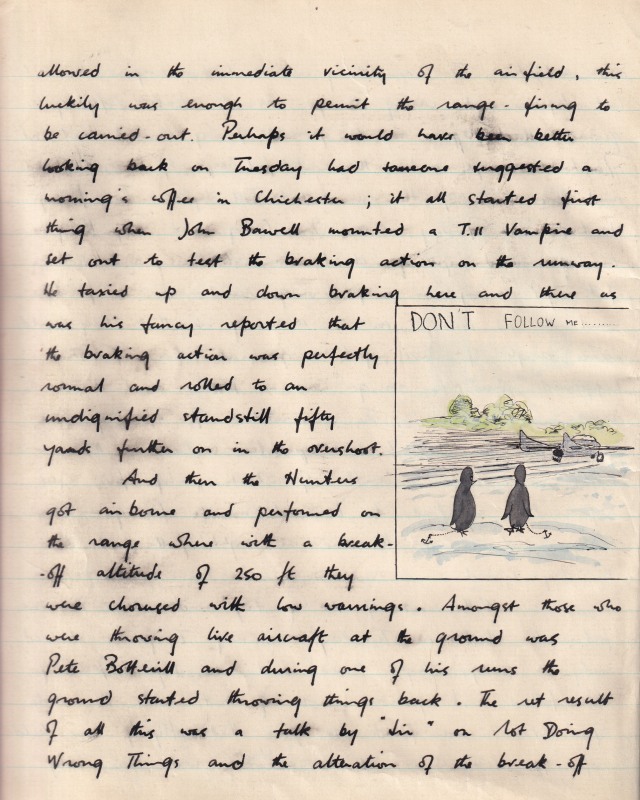 allowed in the immediate vicinity of the airfield, this
luckily was enough to permit the range-firing to
be carried-out. Perhaps it would have been better
looking back on Tuesday had someone suggested a
morning's coffee in Chichester; it all started first
thing when John Barwell mounted a T.11 Vampire and
set out to test the braking action on the runway.
He taxied up and down braking here and there as
was his fancy reported that
the braking action was perfectly
normal and rolled to an
undignified standstill fifty
yards further on in the overshoot.
And then the Hunters
got airborne and performed on
the range where with a break-
-off altitude of 250 ft they
were chorused with low warnings. Amongst those who
were throwing live aircraft at the ground was
Pete Botterill and during one of his runs the
ground started throwing things back. The net result
of all this was a talk by "Sir" on Not Doing
Wrong Things and the alteration of the break-off
DON'T FOLLOW ME.........